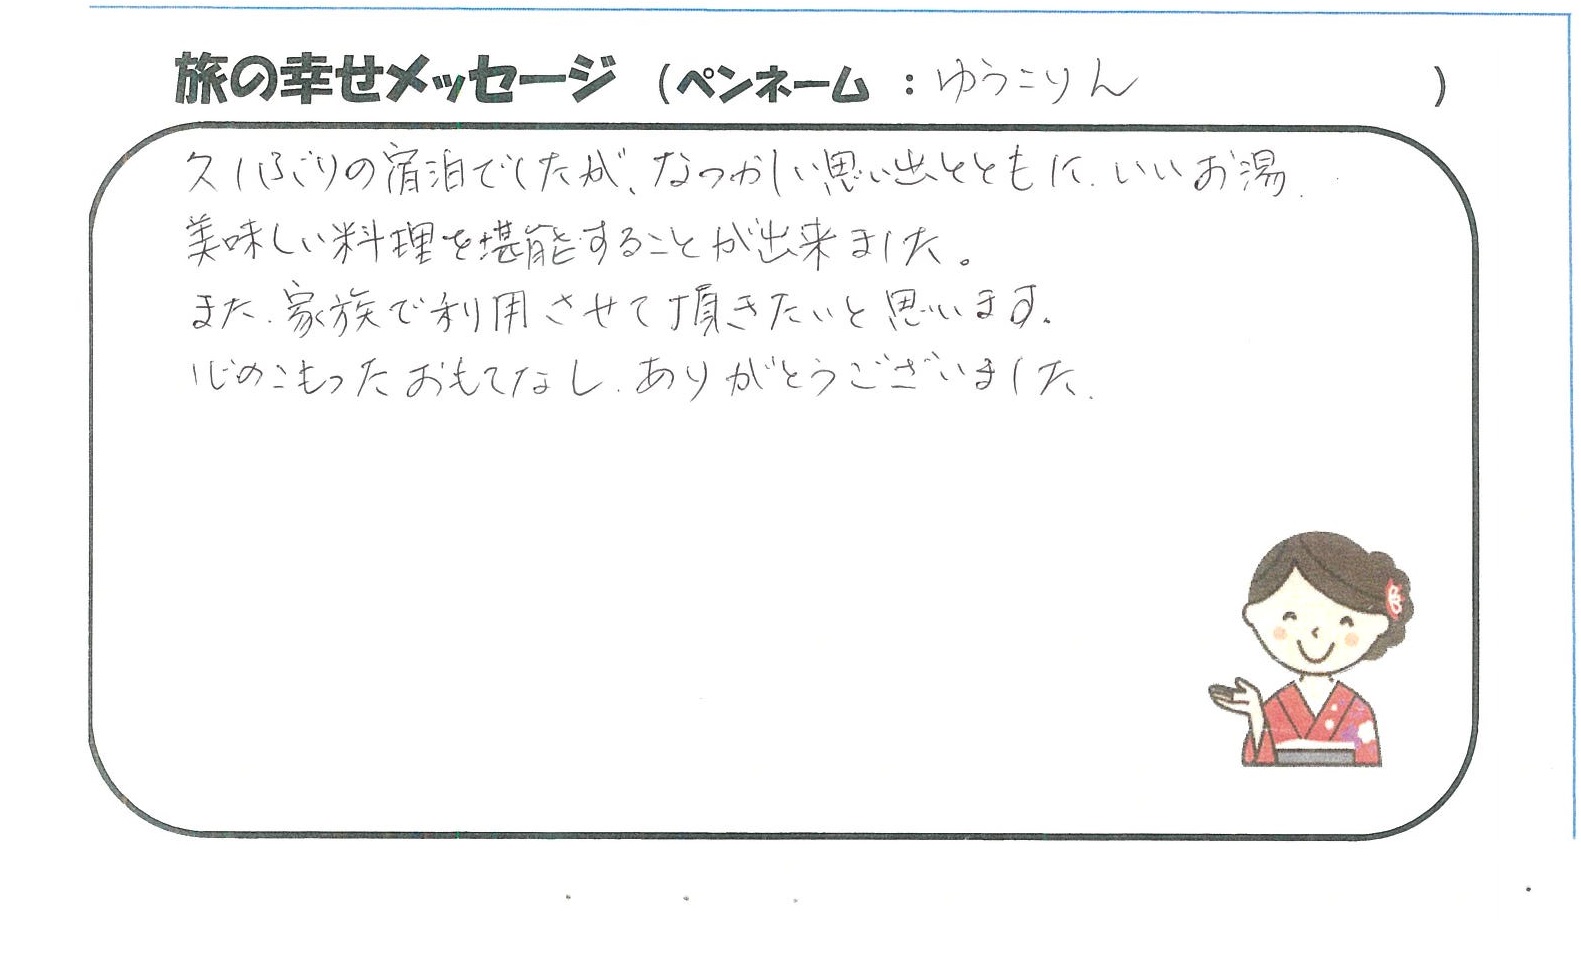 旅の幸せメッセージ (ペンネーム : ゆうこりん )
久しぶりの宿泊でしたが、なつかしい思い出とともに、いいお湯、
美味しい料理を堪能することが出来ました。
また、家族で利用させて頂きたいと思います。
心のこもったおもてなし、ありがとうございました。